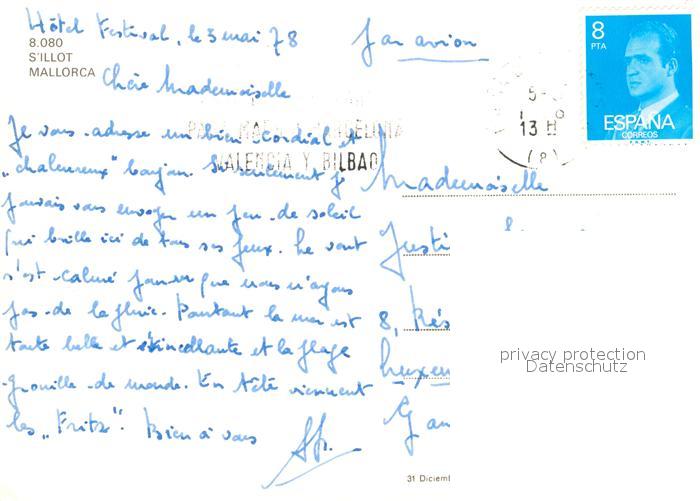 Hôtel Festival, le 3 mai 78
Par avion
8.080
S'ILLOT
MALLORCA
Chère Mademoiselle
8
PTA
ESPAÑA
CORREOS
13 H
(8)
VALENCIA Y BILBAO
Je vous adresse un bien "cordial et
"chaleureux" bonjour. Si seulement je
pouvais vous envoyer un peu de soleil
qui brille ici de tous ses feux. Le vent
s'est calmé pour que nous n'ayons
pas de la pluie. Pourtant la mer est
toute belle et étincellante et la plage
grouille de monde. En tête viennent
les "Fritz". Bien à vous
Mademoiselle
Justi
8, Rés
Luxem
31 Diciem
privacy protection
Datenschutz